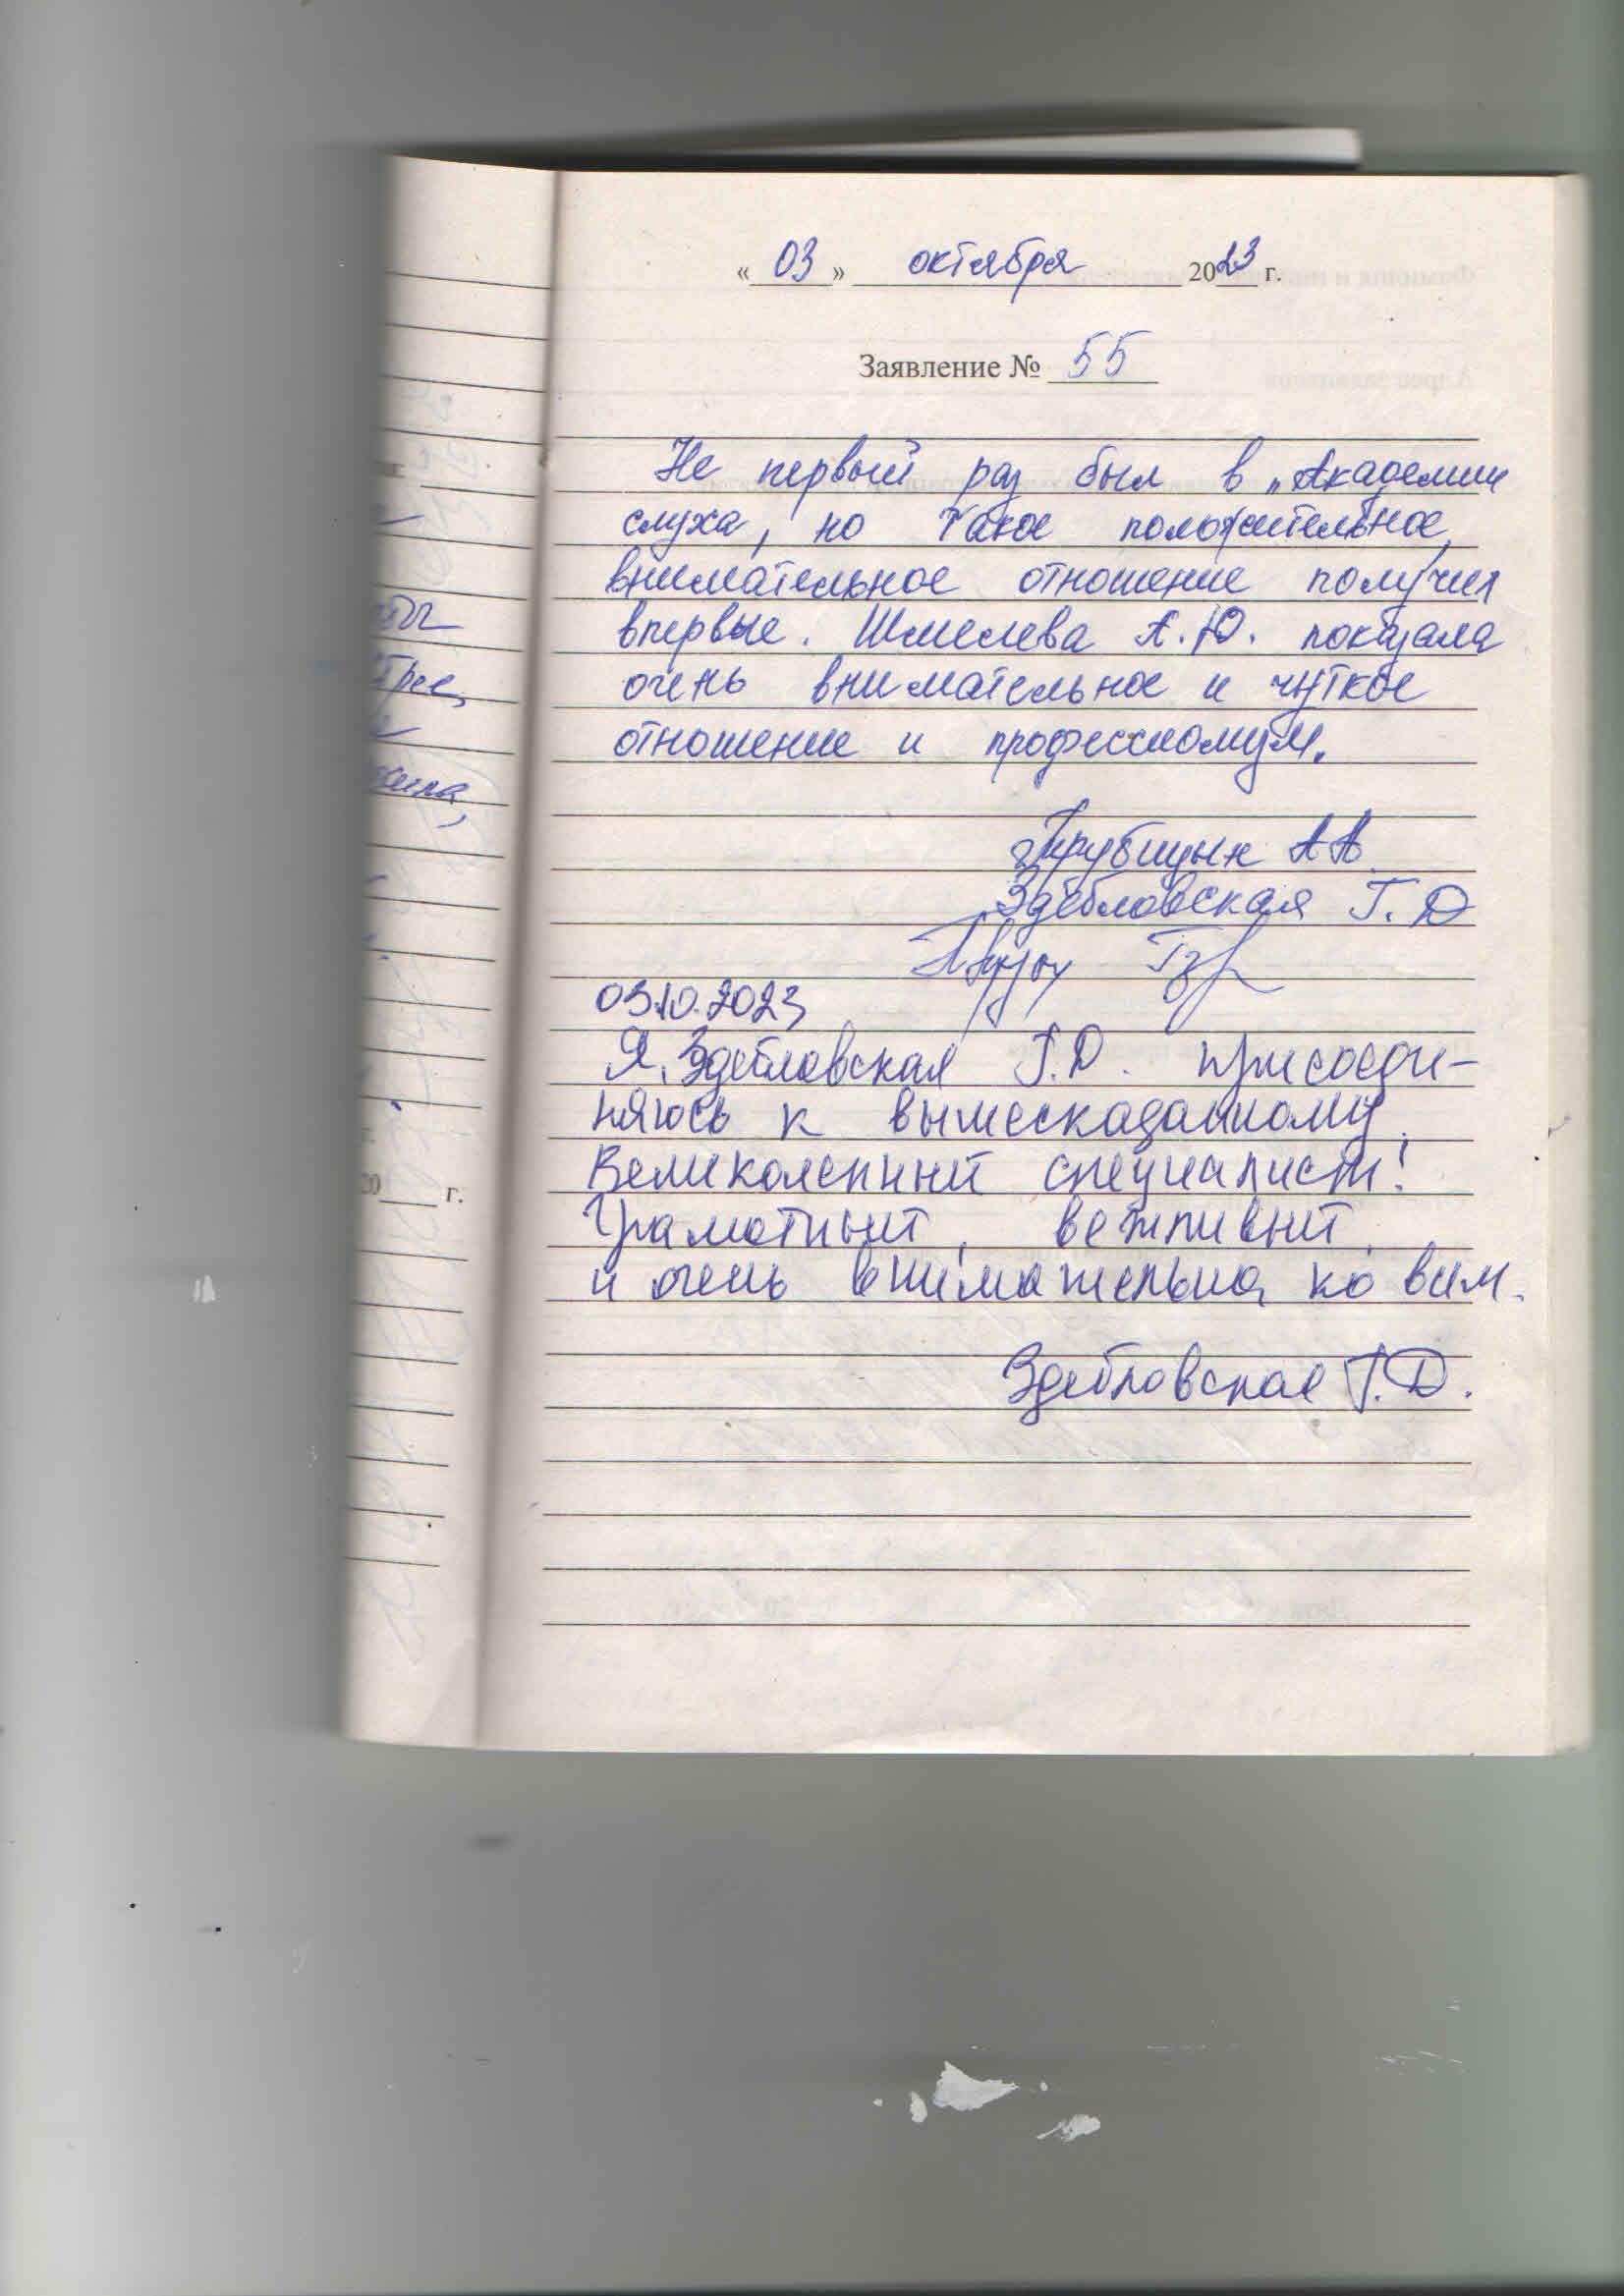 « 03 » октября 2023 г.
Заявление № 55
Не первый раз был в „Академии
слуха, но такое положительное,
внимательное отношение получил
впервые. Шмелева А.Ю. показала
очень внимательное и чуткое
отношение и профессионализм.
Трубицын А А
Здебловская Г. Д
03.10.2023
Я, Здебловская Г.Д. присоеди-
няюсь к вышесказанному.
Великолепный специалист!
Грамотный, вежливый
и очень внимательна ко всем.
Здебловская Г.Д.
20 г.